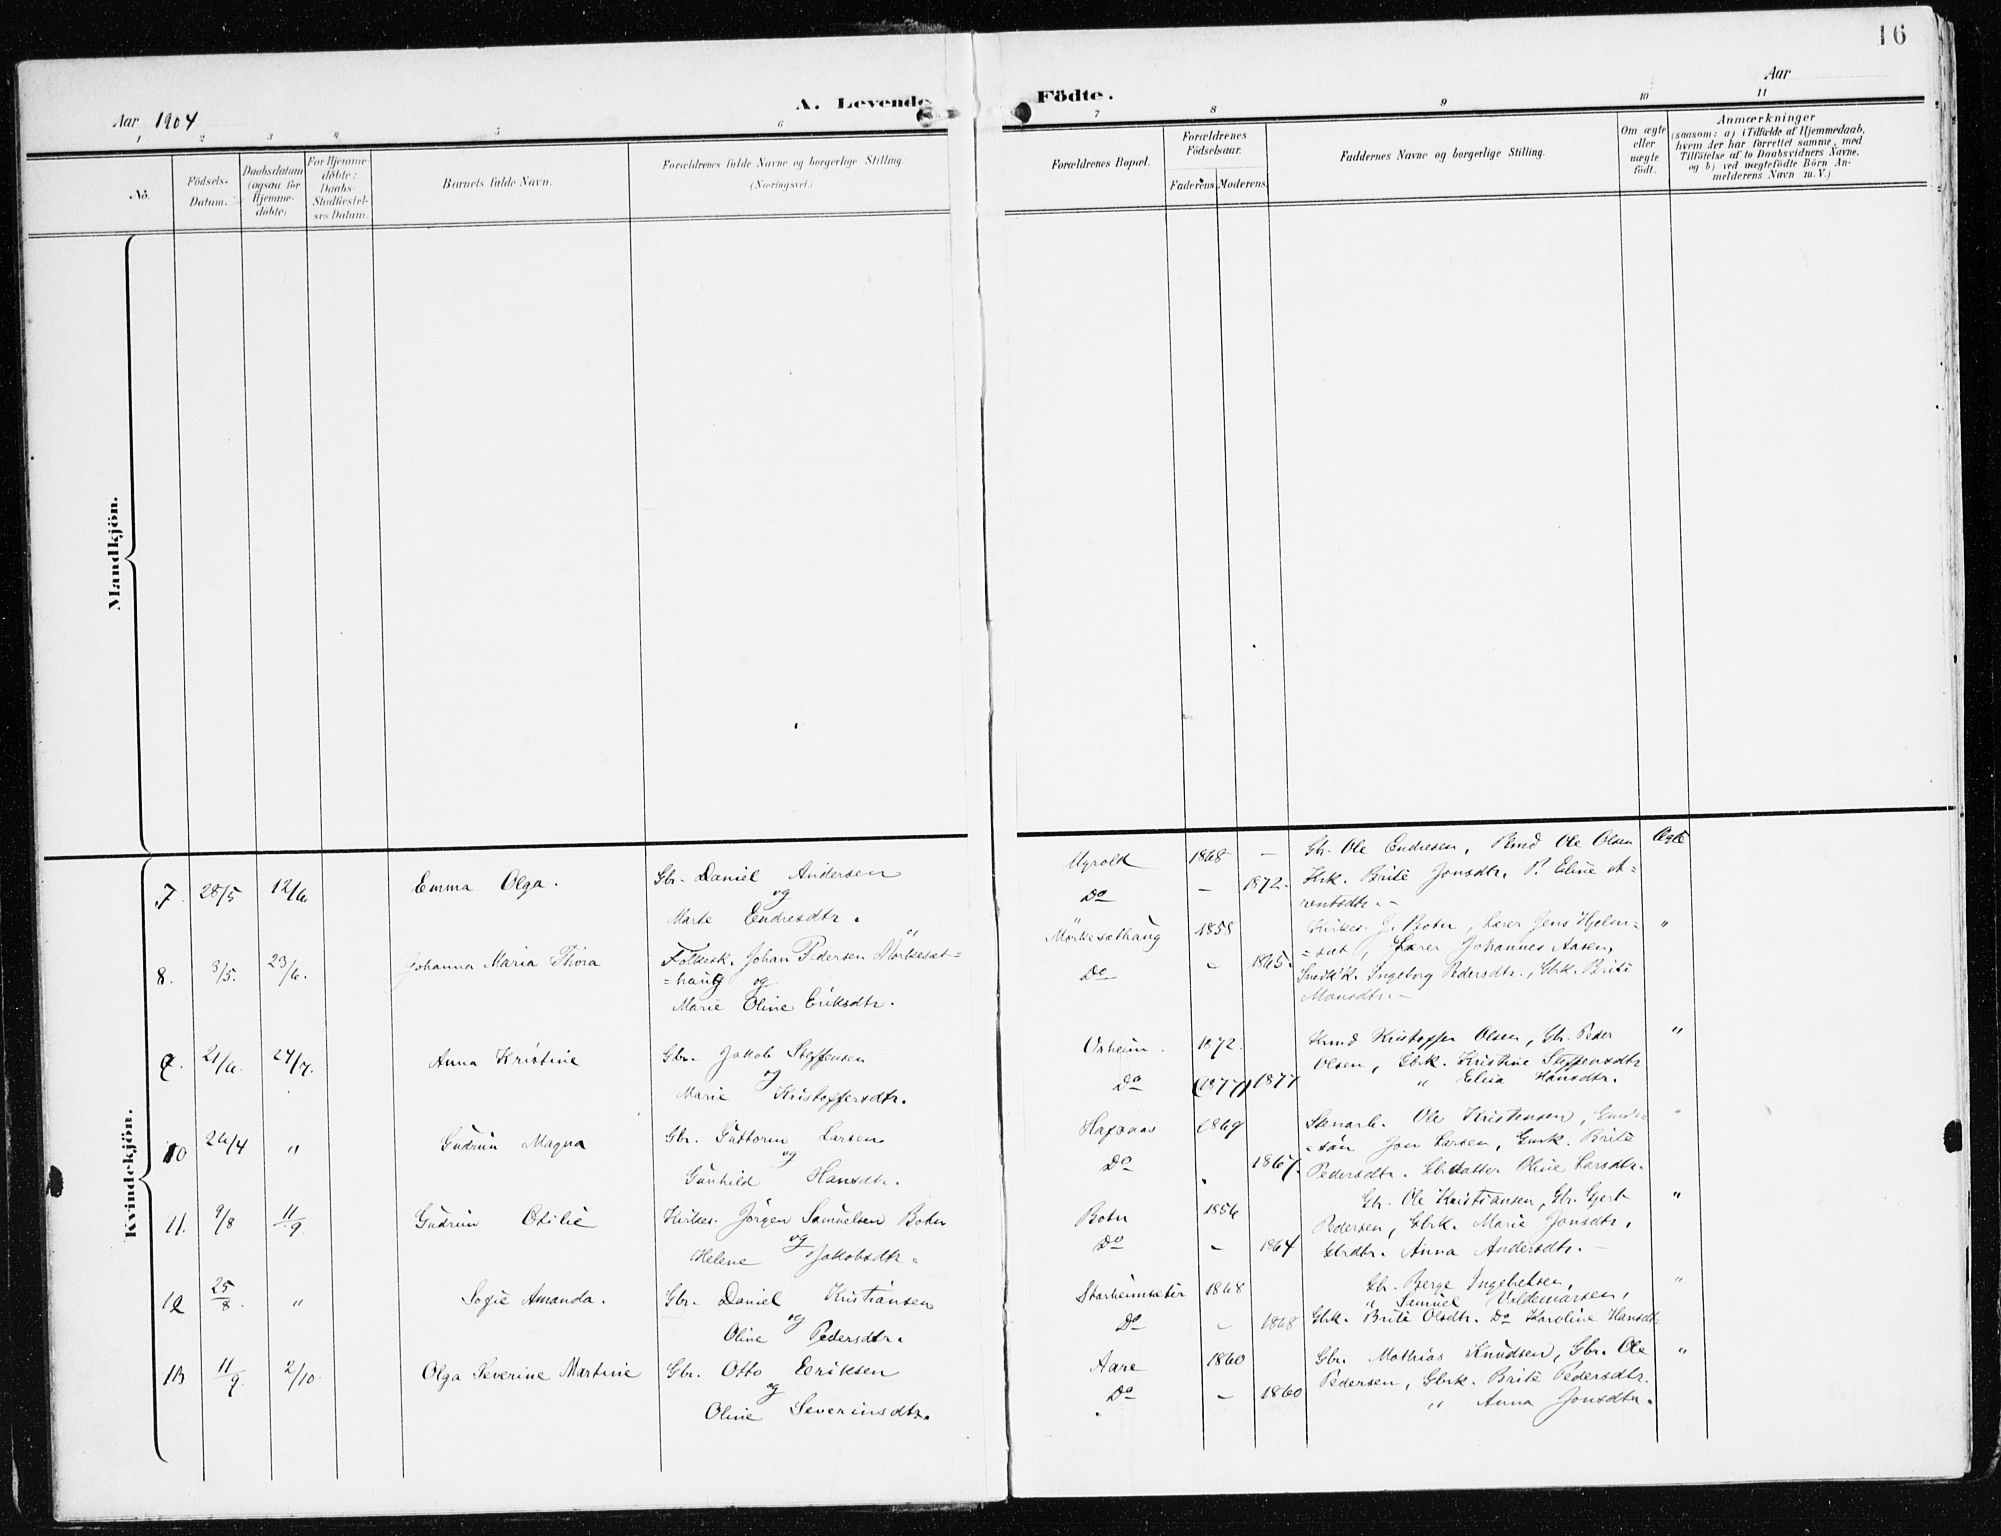 16
Aar 1904
A. Levende Födte.
Aar
1 2 3 4 5 6 7 8 9 10 11
No.
Födsels-Datum.
Daabsdatum (ogsaa for Hjemme-döbte)
For Hjemme-döbte: Daabs-Stadfæstel-ses Datum.
Barnets fulde Navn.
Forældrenes fulde Navne og borgerlige Stilling.
(Næringsvei.)
Forældrenes Bopæl.
Forældrenes Födselsaar.
Faderens Moderens
Faddernes Navne og borgerlige Stilling.
Om ægte eller uægte födt.
Anmærkninger
(saasom: a) i Tilfælde af Hjemmedaab,
hvem der har forrettet samme, med
Tilföielse af to Daabsvidners Navne.
og b) ved uægtefödte Börn An-
melderens Navn m. V.)
Mandkjön.
Kvindekjön.
7. 28/5 12/6 Emma Olga. Gbr. Daniel Andersen
og
Marte Endresdtr.
Myrold 1868 — Gbr. Ole Endresen, Ole Olsen Ægte
Do — 1872. Krk. Brite Jonsdtr. P. Eline A=
rentsdtr. —
8. 3/5. 23/6. Johanna Maria Thora Folkesk. Johan Pedersen Mörkesæt=
=haug og
Marie Oline Eriksdtr.
Mörkesæthaug 1858 Kirkes. J. Botn, Lærer Jens Hjelm= "
=sæt, Lærer Johannes Aasen,
Do – 1865. Ingeborg Pedersdtr., Gbrk. Brite
Monsdtr. —
9. 21/6. 24/7. Anna Kristine Gbr. Jakob Steffensen
og
Marie Kristoffersdtr.
Osheim. 1872. Knud Kristoffer Olsen, Gbr. Peder "
Olsen, Gbrk. Kristine Steffensdtr
Do (1877) 1877 " Elisa Hansdtr.
10 26/4 " Gudrun Magna Gbr. Guttorm Larsen
og
Gunhild Hansdtr.
Hafsaas 1869 Ole Kristensen, "
=sön Jon Larsen, Brite
Do 1867. Pedersdtr. Gbrdatter Oline Larsdtr.
11. 9/8 11/9 Gudrun Otilie Kirkes. Jörgen Samuelsen Botn
og
Helene Jakobsdtr.
Botn 1856 Gbr. Ole Kristiansen, Gbr. Gjert "
Pedersen, Gbrk. Marie Jonsdtr.
Do – 1864 Gbrdtr. Anna Andersdtr. —
12 25/8. " Sofie Amanda. Gbr. Daniel Kristiansen
og
Oline Pedersdtr.
Starheimsæter 1868 Gbr. Berge Ingebretsen, "
" Samuel Valdemarsen,
Do – 1868 Gbrk. Brite Olsdtr. Do Karoline Hansdtr
13 11/9. 2/10. Olga Severine Martine Gbr. Otto Eeriksen
og
Oline Severinsdtr.
Aare 1860 Gbr. Mathias Knudsen, Gbr. Ole "
Pedersen, Gbrk. Brite Pedersdtr.
Do – 1860 " Anna Jonsdtr.